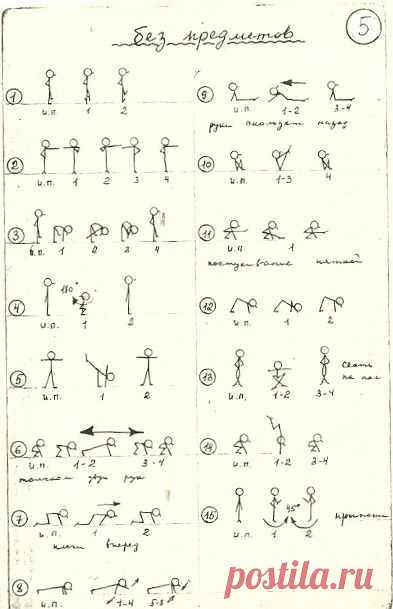 без предметов
5
1
и.п. 1 2
2
и.п. 1 2 3 4
3
и.п. 1 2 3 4
4
180°
и.п. 1 2
5
и.п. 1 2
6
и.п. 1-2 3-4
7
и.п. 1 2
вперед
8
и.п. 1-4 5-8
9
и.п. 1-2 3-4
руки назад
10
и.п. 1-3 4
11
и.п. 1
постукивание пяткой
12
и.п. 1 2
13
и.п. 1-2 3-4
сесть
на пол
14
и.п. 1-2 3-4
15
45°
и.п. 1 2
прыжки
postila.ru